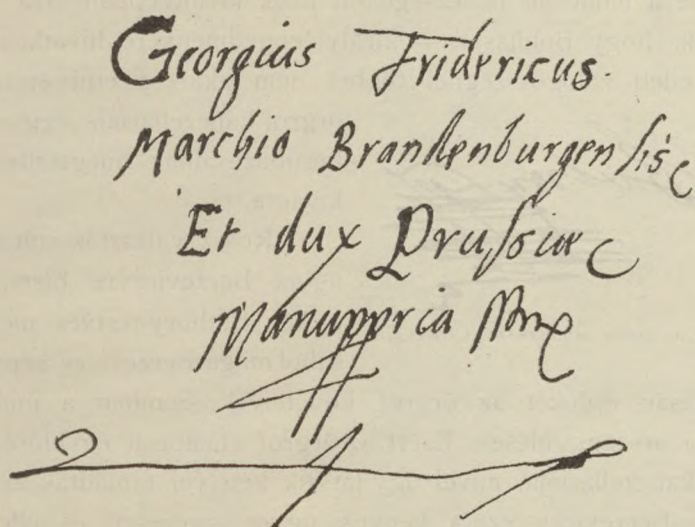 Georgius Fridericus.
Marchio Brandenburgensis
Et dux Prussiae
Manuppria